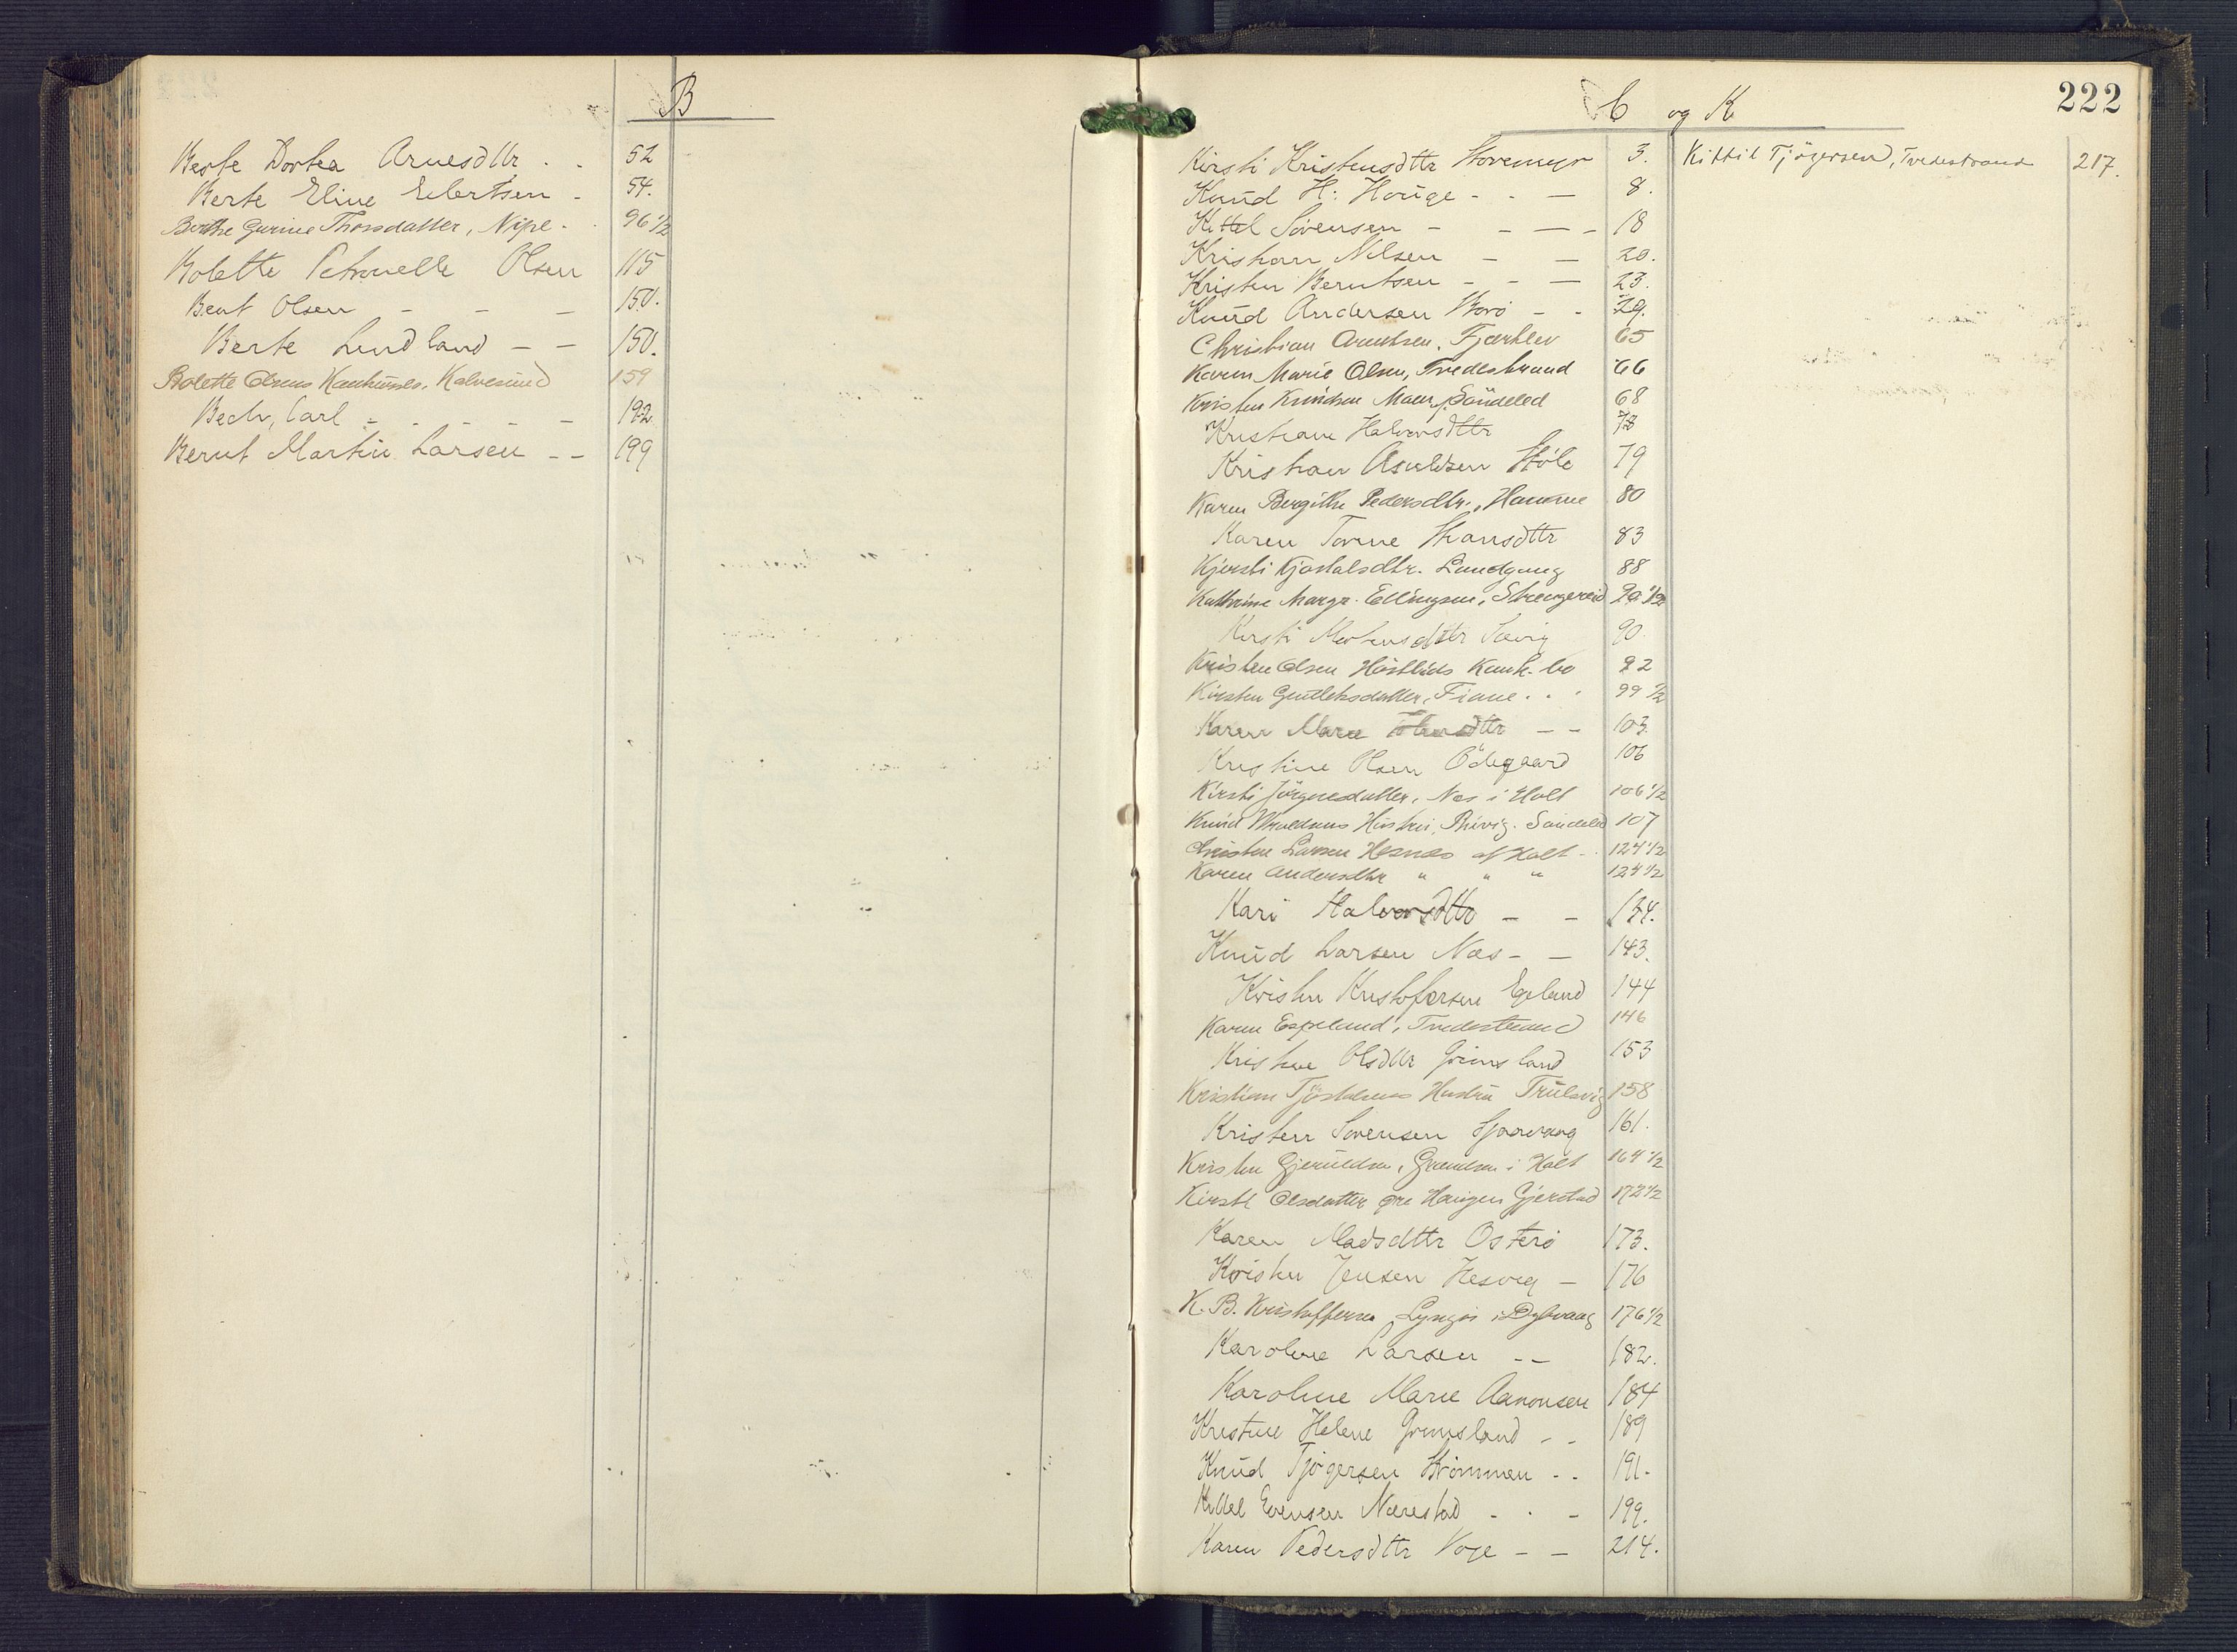 B
Berte Dortea Arnesdttr . . 52
Berte Eline Eilertsen - 54.
Berthe Gurine Thorsdatter, Nipe - 96 1/2
Bolette Petronelle Olsen 115
Bent Olsen - - - 150.
Berte Lindland - - 150.
Bolette Olsens Kalvesund 159
Bech, Carl - - - - 192
Bernt Martin Larsen - - 199
222
C og K
Kirsti Kristensdttr Storemyr 3.
Knud H. Hauge - - - 8.
Kittel Sörensen - - - - 18
Kristian Nilsen - - 20.
Kristen Berntsen - - - 23.
Knud Andersen Borö - - 29.
Christian Arentsen, Fjærklev 65
Karen Marie Olsen, Tvedestrand 66
Kristen Knudsen Moen, Söndeled 68
Kristiane Halvorsdttr 78
Kristian Asuldsen Støle 79
Karen Bergithe Pedersdtr., 80
Karen Tomine Hansdttr 83
Kjersti Kjøstalsdtr. Lundgang 88
Kathrine Margr. Ellingsen, Strengereid 90 1/2
Kirsti Mortensdttr Sævig 90
Kristen Olsen 92
Kirsten Gundleksdatter, Fiane . . . 99 1/2
Karen Marie - - 103.
Kristine Olsen Ödegaard 106
Kirsti Jörgensdatter, Nes i Holt 106 1/2
Knud Söndeled 107
Christen Larsen Hesnæs af Holt - 124 1/2
Karen Andersdtr " " " 124 1/2
Kari Halvorsdttr - - 134.
Knud Larsen Næs - - 143.
Kristen Kristofersen Egeland 144
Karen Espeland, Tvedestrand 146
Kristine Olsdttr Grimsland 153
Kristian Hustru Trulsvig 158
Kristen Sörensen 161.
Kristen Gjeruldsen, i Holt 164 1/2
Kirsti Olsdatter Øvre Haugen Gjerstad 172 1/2
Karen Madsdttr Osterö 173.
Kristen Jensen Hesvig - 176
K. B. Kristoffersen Lyngör i Dybvaag 176 1/2
Karoline Larsen - - 182.
Karoline Marie Aanonsen 184
Kristine Helene Grimsland - - 189
Knud Tjögersen Strömmen - - 191.
Kittel Evensen Nærestad - - - 199.
Karen Pedersdttr Voje - - 214.
Kittil Tjögersen, Tvedestrand 217.